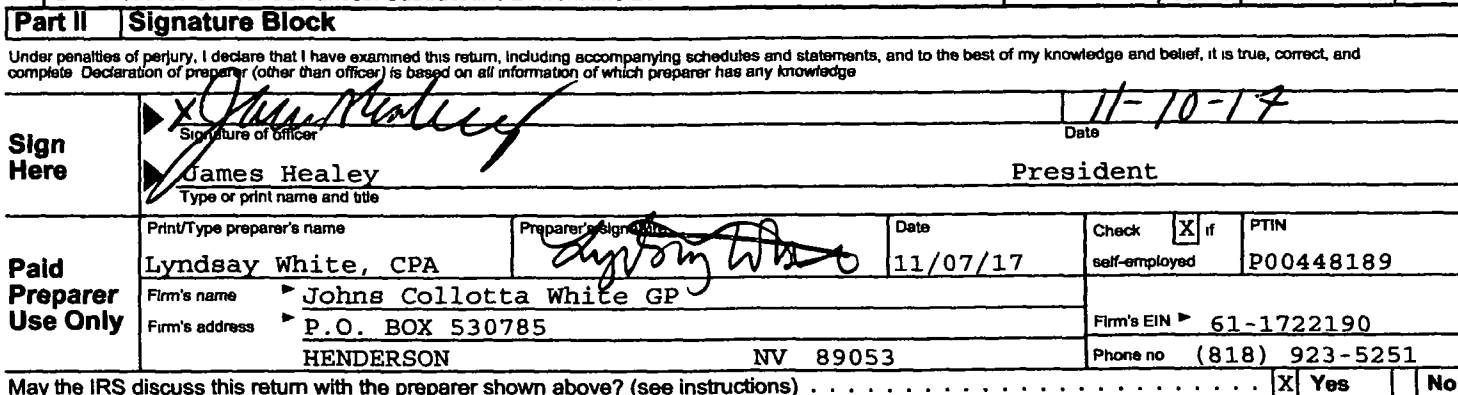 Part II Signature Block
Under penalties of perjury, I declare that I have examined this return, including accompanying schedules and statements, and to the best of my knowledge and belief, it is true, correct, and
complete Declaration of preparer (other than officer) is based on all information of which preparer has any knowledge
Sign Here
X James Healey 11-10-17
Signature of officer Date
James Healey President
Type or print name and title
Paid Preparer Use Only
Print/Type preparer's name Preparer's signature Date Check X if PTIN
Lyndsay White, CPA Lyndsay White 11/07/17 self-employed P00448189
Firm's name Johns Collotta White GP
Firm's address P.O. BOX 530785 Firm's EIN 61-1722190
HENDERSON NV 89053 Phone no (818) 923-5251
May the IRS discuss this return with the preparer shown above? (see instructions) X Yes No